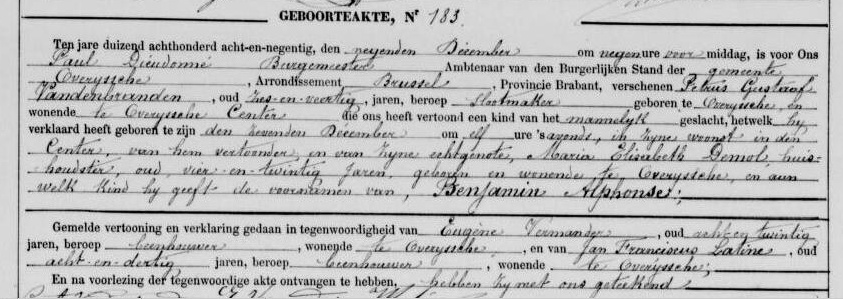 GEBOORTEAKTE, Nr 183.
Ten jare duizend achthonderd acht-en-negentig, den negenden December om negen ure voor middag, is voor Ons
Paul Dieudonné Burgemeester Ambtenaar van den Burgerlijken Stand der gemeente
Overyssche, Arrondissement Brussel, Provincie Brabant, verschenen Petrus Gustaaf
Vandenbranden, oud zes-en-veertig, jaren, beroep slotmaker geboren te Overyssche, en
wonende te Overyssche Center die ons heeft vertoond een kind van het mannelyk geslacht, hetwelk hy
verklaard heeft geboren te zijn den zevenden December om elf ure 's avonds, in zyne woonst in den
Center, van hem vertooner, en van zyne echtgenote, Maria Elisabeth Demol, huis-
houdster, oud vier-en-twintig jaren, geboren en wonende te Overyssche, en aan
welk kind hy geeft de voornamen van, Benjamin Alphonse;
Gemelde vertooning en verklaring gedaan in tegenwoordigheid van Eugène Vermander, oud acht en twintig
jaren, beroep beenhouwer, wonende te Overyssche, en van Jan Franciscus Latine, oud
acht-en-dertig jaren, beroep beenhouwer, wonende te Overyssche;
En na voorlezing der tegenwoordige akte ontvangen te hebben, hebben zy met ons geteekend